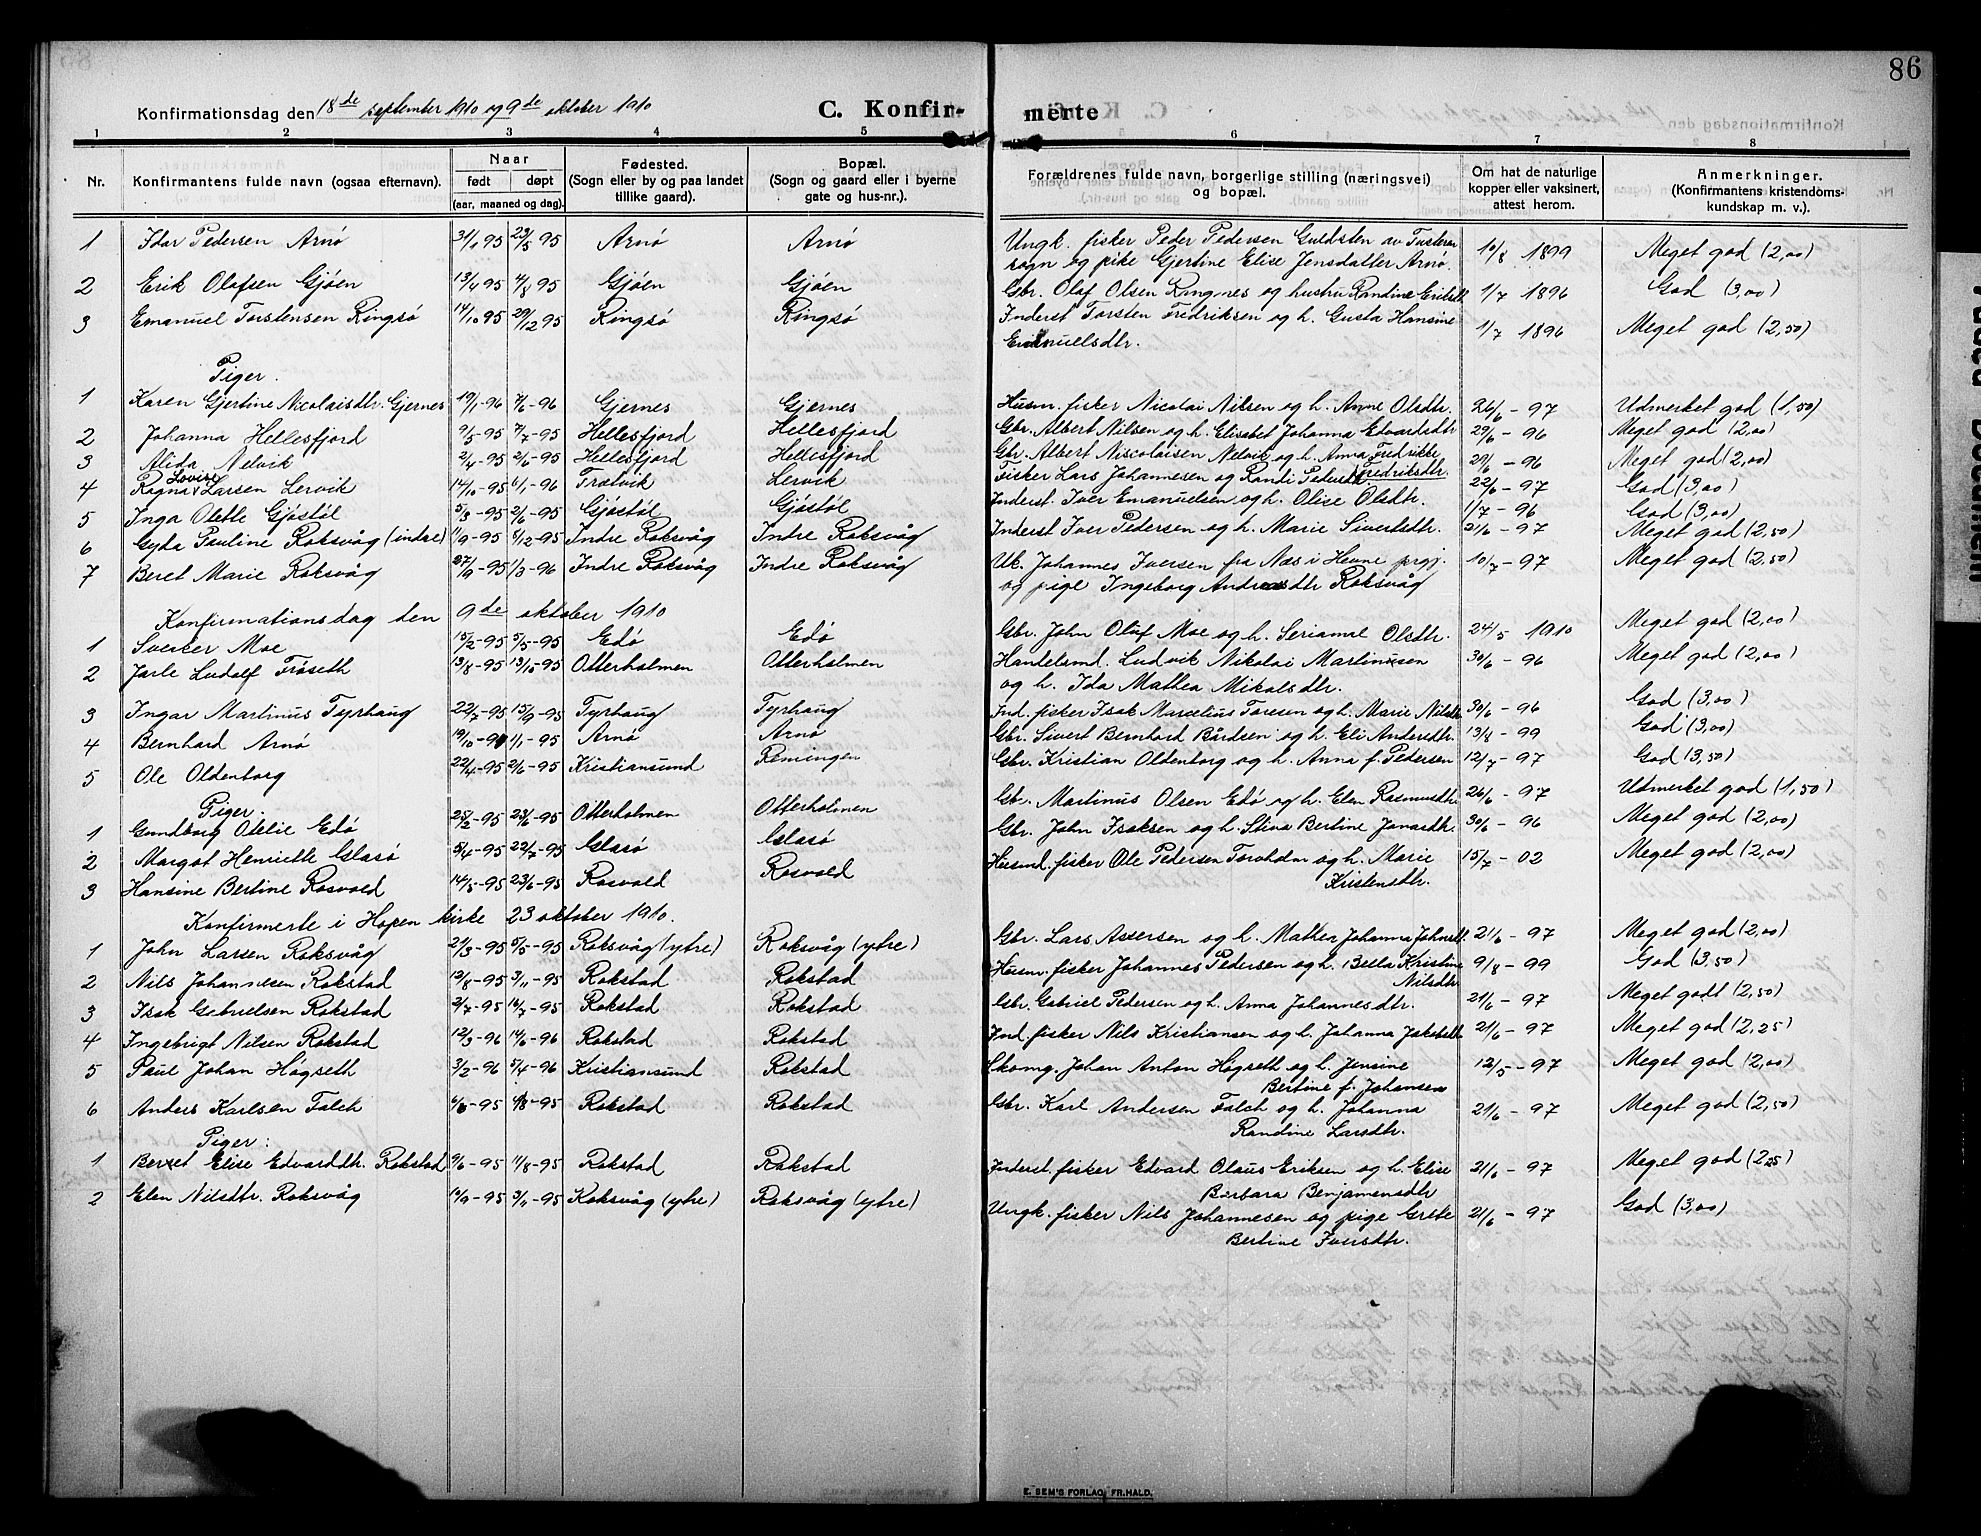 86
Konfirmationsdag den 18de september 1910 og 9de oktober 1910 C. Konfirmerte
1 2 3 4 5 6 7 8
Nr. Konfirmantens fulde navn (ogsaa efternavn). Naar født døpt (aar, maaned og dag). Fødested. (Sogn eller by og paa landet tillike gaard). Bopæl. (Sogn og gaard eller i byerne gate og hus-nr.). Forældrenes fulde navn, borgerlige stilling (næringsvei) og bopæl. Om hat de naturlige kopper eller vaksinert, attest herom. Anmerkninger. (Konfirmantens kristendomskundskap m. v.).
1 Idar Pedersen Arnø 31/1 95 23/5 95 Arnø Arnø Ungk. fisker Peder Pedersen Guldsten av Tusteren sogn og pike Gjertine Elise Jensdatter Arnø. 10/8 1899 Meget god (2,00)
2 Erik Olafsen Gjøen 13/4 95 4/8 95 Gjøen Gjøen Gbr. Olaf Olsen Ringnes og hustru Randine Eriksdtr 1/7 1896 God (3,00)
3 Emanuel Torstensen Ringsø 14/10 95 29/12 95 Ringsø Ringsø Inderst Torsten Fredriksen og h. Gusta Hansine Emanuelsdtr. 1/7 1896 Meget god (2,50)
Piger.
1 Karen Gjertine Nicolaisdtr. Gjernes 19/1-96 7/6-96 Gjernes Gjernes Husm. fisker Nicolai Nilsen og h. Anne Olsdtr. 26/6-97 Udmerket god (1,50)
2 Johanna Hellesfjord 9/5-95 7/7-95 Hellesfjord Hellesfjord Gbr. Albert Nilsen og h. Elisabet Johanna Edvardsdtr 29/6-96 Meget god (2,00)
3 Alida Nelvik 2/4-95 2/6-95 Hellesfjord Hellesfjord Gbr. Albert Niscolaisen Nelvik og h. Anna Fredrikke Fredriksdtr. 29/6-96 Meget god (2,00)
4 Ragna Lovise Larsen Lervik 14/10-95 6/1-96 Trælvik Lervik Fisker Lars Johannesen og Randi Pedersdtr. 22/6-97 God (3,00)
5 Inga Olette Gjøstøl 5/3-95 2/6-95 Gjøstøl Gjøstøl Inderst. Iver Emanuelsen og h. Olise Olsdtr. 1/7-96 God (3,00)
6 Gyda Pauline Roksvåg (indre) 11/9-95 8/12-95 Indre Roksvåg Indre Roksvåg Inderst Iver Pedersen og h. Marie Sivertsdtr. 21/6-97 Meget god (2,50)
7 Beret Marie Roksvåg 27/9-95 1/3-96 Indre Roksvåg Indre Roksvåg Uk. Johannes Iversen fra Næs i Hevne prgj. og pige Ingeborg Andreasdtr Roksvåg 10/7-97 Meget god (2,50)
Konfirmationsdag den 9de oktober 1910
1 Sverker Moe 15/2-95 5/5-95 Edø Edø Gbr. John Oluf Moe og h. Serianne Olsdtr. 24/5 1910 Meget god (2,00)
2 Jarle Ludolf Frøseth 13/8-95 13/10-95 Otterholmen Otterholmen Handelsmd. Ludvik Nikolai Martinusen og h. Ida Mathea Mikalsdtr. 30/6-96 Meget god (2,00)
3 Ingar Martinus Tyrhaug 22/7-95 15/9-95 Tyrhaug Tyrhaug Ind. fisker Isak Marcelius Toresen og h. Marie Nilsdtr 30/6-96 God (3,00)
4 Bernhard Arnø 19/10-94 1/1-95 Arnø Arnø Gbr. Sivert Bernhard Bårdsen og h. Eli Andersdtr. 13/8-99 God (3,00)
5 Ole Oldenborg 22/4-95 2/6-95 Kristiansund Reningen Gbr. Kristian Oldenborg og h. Anna f. Pedersen 12/7-97 God (3,50)
Piger.
1 Gundborg Otelie Edø 25/2-95 23/6-95 Otterholmen Otterholmen Gbr. Martinus Olsen Edø og h. Elen Rasmusdtr 26/6-97 Udmerket god (1,50)
2 Margot Henriette Glasø 5/4-95 22/7-95 Glasø Glasø Gbr. John Isaksen og h. Stina Bertine Jonasdtr. 30/6-96 Meget god (2,00)
3 Hansine Bertine Rosvold 14/5-95 23/6-95 Rosvold Rosvold Husmd. fisker Ole Pedersen Torvholm og h. Marie Kristensdtr. 15/7-02 Meget god (2,00)
Konfirmerte i Hopen kirke 23 oktober 1910.
1 John Larsen Roksvåg 21/3-95 5/5-95 Roksvåg (ytre) Roksvåg (ytre) Gbr. Lars Assersen og h. Mathea Johanna Johnsdtr. 21/6-97 Meget god (2,00)
2 Nils Johannesen Rokstad 12/8-95 3/11-95 Rokstad Rokstad Husm. fisker Johannes Pedersen og h. Bella Kristine Nilsdtr 9/8-99 God (3,50)
3 Isak Gabrielsen Rokstad 2/7-95 14/7-95 Rokstad Rokstad Gbr. Gabriel Pedersen og h. Anna Johannesdtr. 21/6-97 Meget godt (2,50)
4 Ingebrigt Nilsen Rokstad 12/3-96 14/6-96 Rokstad Rokstad Ind. fisker Nils Kristiansen og h. Johanna Jakobsdtr 21/6-97 Meget god (2,25)
5 Paul Johan Høgseth 3/2-96 5/4-96 Kristiansund Rokstad Skomg. Johan Anton Høgseth og h. Jensine Bertine f. Johansen 12/5-97 Meget god (2,00)
6 Anders Karlsen Falch 6/6-95 4/8-95 Rokstad Rokstad Gbr. Karl Andersen Falch og h. Johanna Randine Larsdtr. 21/6-97 Meget god (2,50)
Piger:
1 Beret Elise Edvarddtr. Rokstad 9/6-95 11/8-95 Rokstad Rokstad Inderst. fisker Edvard Olaus Eriksen og h. Elise Barbara Benjamensdtr 21/6-97 Meget god (2,25)
2 Elen Nilsdtr. Roksvåg 14/9-95 3/11-95 Roksvåg (ytre) Roksvåg (ytre) Ungk. fisker Nils Johannesen og pige Grete Bertine Iversdtr. 21/6-97 God (3,00)
E. SEM'S FORLAG, FR.HALD.